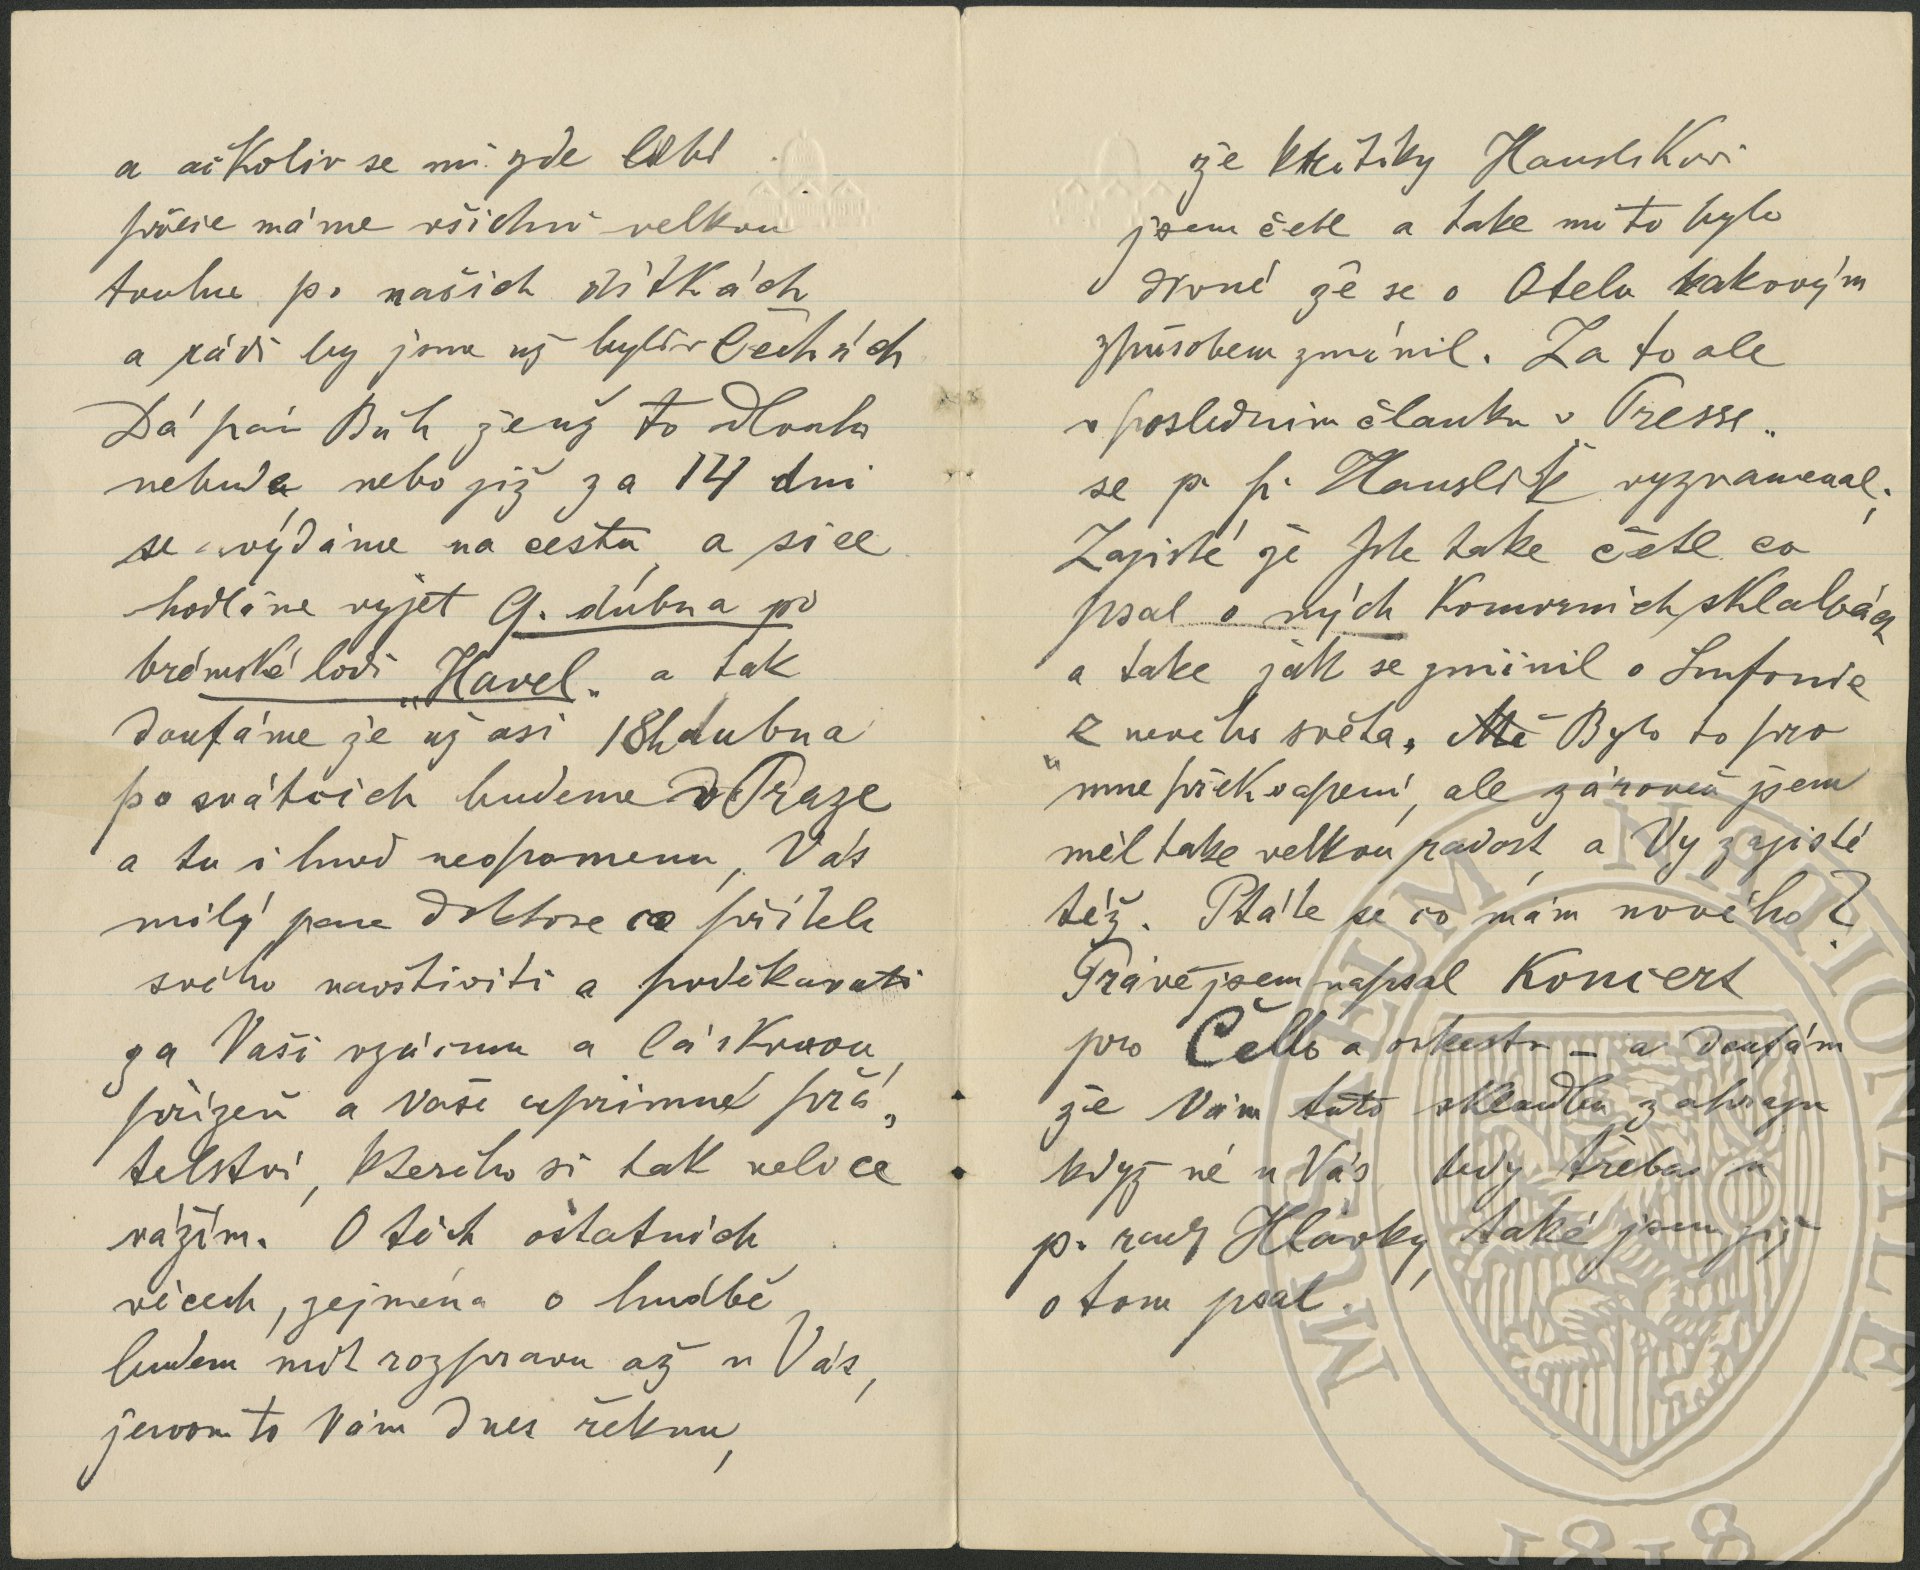 a ačkoliv se mi zde líbí
přece máme všichni velkou
touhu po našich dítkách
a rádi by jsme už byli v Čechách
Dá pán Bůh že už to dlouho
nebude nebo již za 14 dni
se vydáme na cestu, a sice
hodláme vyjet 9. dubna po
brémské lodi „Havel„ a tak
doufáme že už asi 18ho dubna
po svátcích budeme v Praze
a tu i hned neopomenu, Vás
milý pane doktore co přítele
svého navštíviti a poděkovati
za Vaši vzácnou a láskavou
přízeň a Vaše upřimné přá„
telství, kterého si tak velice
vážím. O těch ostatních
věcech, zejmena o hudbě
budem mít rozpravu až u Vás,
jenom to Vám dnes řeknu,
že kritiky Hanslikovi
jsem četl a take mi to bylo
divné že se o Otelu takovým
způsobem zmínil. Za to ale
v posledním članku v Presse„
se p. p. Hanslik vyznamenal,
Zajisté že jste take četl co
psal o mých Komorních skladbách
a take jak se zmiínil o Sinfonie
„Z nového světa„ Mě Bylo to pro
mne překvapení, ale zároveň jsem
měl take velkou radost, a Vy zajisté
též. Ptáte se co mám nového?
Právě jsem napsal Koncert
pro Čello a orkestr – a doufám
že Vám tuto skladbu zahraju
když né u Vás tedy třebas u
p. rady Hlávky, také jsem již
o tom psal.
MUSAEUM NATIONALE
1818